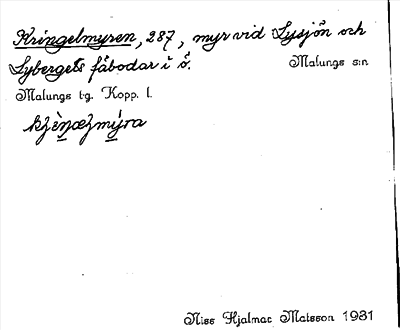 Kringelmyren, 287, myr vid Lysjön och
Lybergets fäbodar i ö.
Malungs s:n
Malungs tg. Kopp. l.
Nils Hjalmar Matsson 1931